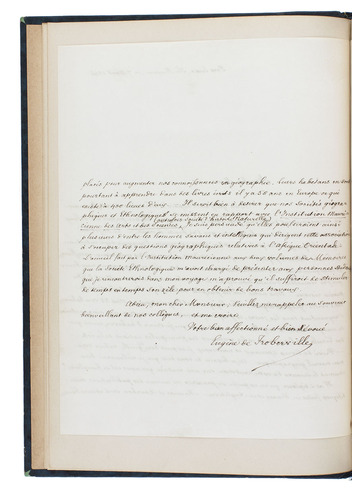 placés pour augmenter nos connaissances en géographie, leurs habitans en sont
pourtant à apprendre dans des livres écrits il y a 25 ans en Europe ce qui
existe à 400 lieues d'eux. Il serait bien à désirer que nos Sociétés géogra-
phiques et Ethnologiques se missent en rapport avec l'Institution Mauri-
cienne des Arts et des Sciences. Je suis persuadé qu'elles pousseraient ainsi
plusieurs d'entre les hommes savans et zélés qui dirigent cette association
à s'occuper des questions géographiques relatives à l'Afrique Orientale.
L'accueil fait par l'Institution mauricienne aux deux volumes des Mémoires
que la Société Ethnologique m'avait chargé de présenter aux personnes
que je rencontrerais dans mon voyage, m'a prouvé qu'il suffirait de stimuler
de temps en temps son zèle pour en obtenir de bons travaux.
Adieu, mon cher Monsieur, veuillez me rappeler au souvenir
bienveillant de nos collègues, et me croire
Votre bien affectionné et bien dévoué
Eugène de Froberville